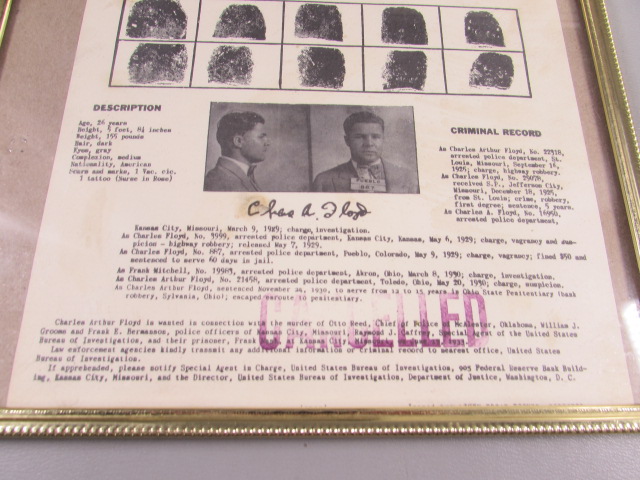 DESCRIPTION
Age, 26 years
Height, 5 feet, 8¼ inches
Weight, 155 pounds
Hair, dark
Eyes, gray
Complexion, medium
Nationality, American
Scars and marks, 1 Vac. cic.
1 tattoo (Nurse in Rose)
CRIMINAL RECORD
As Charles Arthur Floyd, No. 22318,
arrested police department, St.
Louis, Missouri, September 16,
1925; charge, highway robbery.
As Charles Floyd, No. 29078,
received S.P., Jefferson City,
Missouri, December 18, 1925,
from St. Louis; crime, robbery,
first degree; sentence, 5 years.
As Charles A. Floyd, No. 16950,
arrested police department,
Chas A. Floyd
Kansas City, Missouri, March 9, 1929; charge, investigation.
As Charles Floyd, No. 3999, arrested police department, Kansas City, Kansas, May 6, 1929; charge, vagrancy and sus-
picion - highway robbery; released May 7, 1929.
As Charles Floyd, No. 887, arrested police department, Pueblo, Colorado, May 9, 1929; charge, vagrancy; fined $50 and
sentenced to serve 60 days in jail.
As Frank Mitchell, No. 19983, arrested police department, Akron, Ohio, March 8, 1930; charge, investigation.
As Charles Arthur Floyd, No. 21458, arrested police department, Toledo, Ohio, May 20, 1930; charge, suspicion.
As Charles Arthur Floyd, sentenced November 24, 1930, to serve from 12 to 15 years in Ohio State Penitentiary (bank
robbery, Sylvania, Ohio); escaped enroute to penitentiary.
CANCELLED
Charles Arthur Floyd is wanted in connection with the murder of Otto Reed, Chief of Police of McAlester, Oklahoma, William J.
Grooms and Frank E. Hermanson, police officers of Kansas City, Missouri, Raymond J. Caffrey, Special Agent of the United States
Bureau of Investigation, and their prisoner, Frank Kansas 1933.
Law enforcement agencies kindly transmit any additional information or criminal record to nearest office, United States
Bureau of Investigation.
If apprehended, please notify Special Agent in Charge, United States Bureau of Investigation, 905 Federal Reserve Bank Build-
ing, Kansas City, Missouri, and the Director, United States Bureau of Investigation, Department of Justice, Washington, D. C.